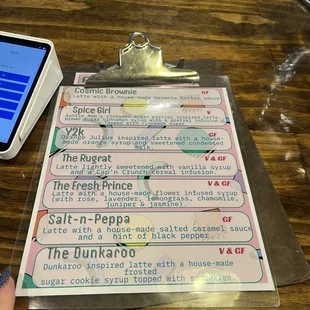 Cosmic Brownie GF
Latte with a house-made brownie batter sauce
Spice Girl V
Auntie Ann's cinnamon sugar pretzel inspired latte
brown sugar cinnamon syrup with a pretzel
topped with cinnamon
Y2k GF
Orange Julius inspired latte with a house-
made orange syrup and sweetened condensed
milk.
The Rugrat V & GF
Latte lightly sweetened with vanilla syrup
and a Cap'n Crunch cereal infusion.
The Fresh Prince V & GF
Latte with a house-made flower infused syrup
(with rose, lavender, lemongrass, chamomile,
juniper & jasmine).
Salt-n-Peppa GF
Latte with a house-made salted caramel sauce
and a hint of black pepper.
The Dunkaroo V & GF
Dunkaroo inspired latte with a house-made
frosted
sugar cookie syrup topped with sprinkles.